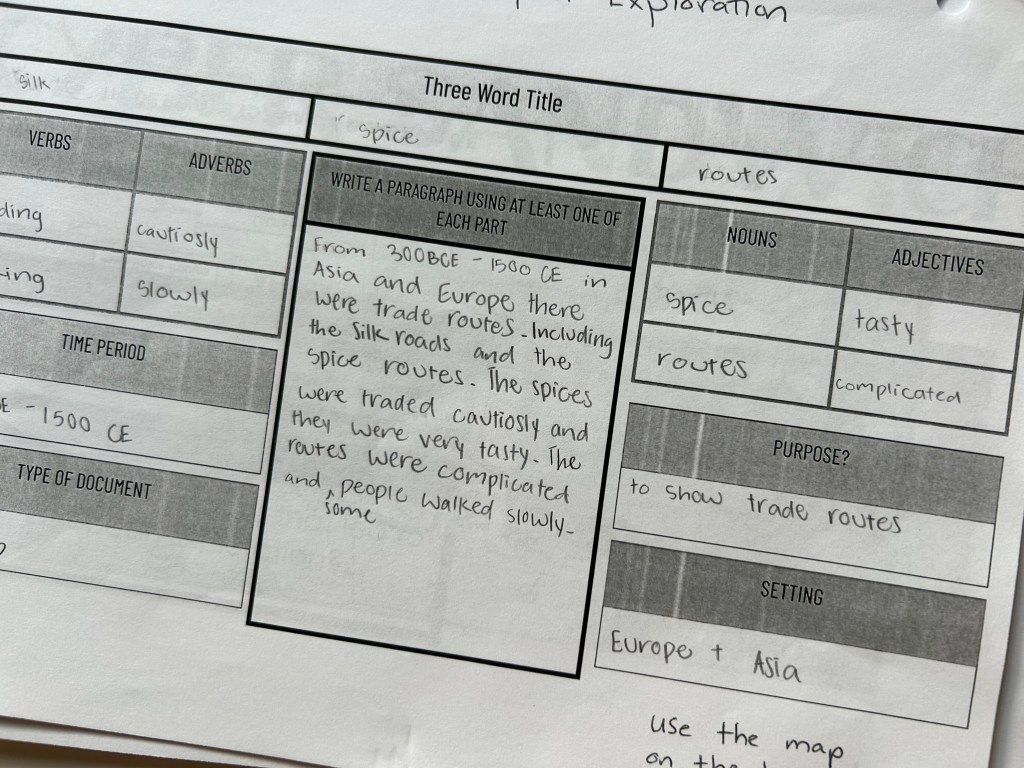 Exploration
Three Word Title
silk
spice
routes
VERBS
ADVERBS
cautiosly
slowly
TIME PERIOD
- 1500 CE
TYPE OF DOCUMENT
WRITE A PARAGRAPH USING AT LEAST ONE OF
EACH PART
From 300BCE - 1500 CE in
Asia and Europe there
were trade routes. Including
the silk roads and the
spice routes. The spices
were traded cautiosly and
they were very tasty. The
routes were complicated
and some people walked slowly.
NOUNS
ADJECTIVES
spice
tasty
routes
complicated
PURPOSE?
to show trade routes
SETTING
Europe + Asia
use the map
on the